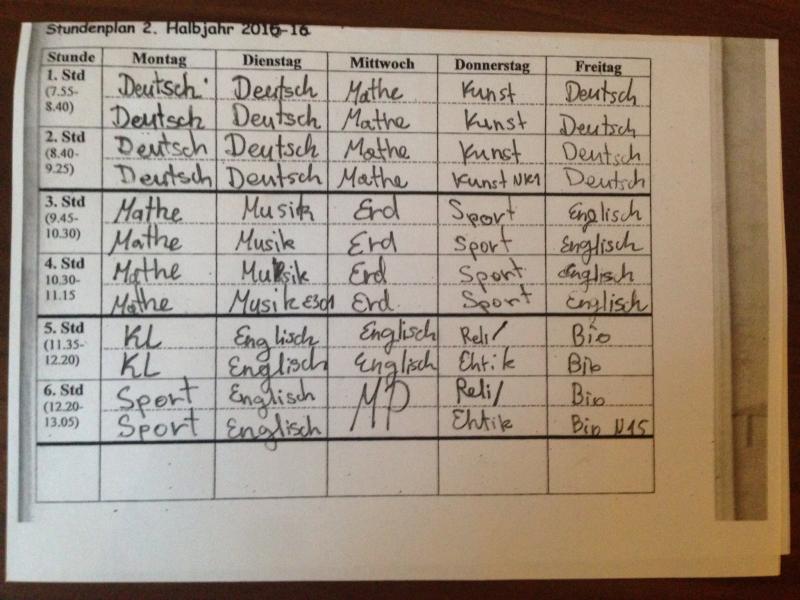 Stundenplan 2. Halbjahr 2016-16
Stunde Montag Dienstag Mittwoch Donnerstag Freitag
1. Std Deutsch Deutsch Mathe Kunst Deutsch
(7.55-
8.40) Deutsch Deutsch Mathe Kunst Deutsch
2. Std Deutsch Deutsch Mathe Kunst Deutsch
(8.40-
9.25) Deutsch Deutsch Mathe Kunst NK1 Deutsch
3. Std Mathe Musik Erd Sport Englisch
(9.45-
10.30) Mathe Musik Erd Sport Englisch
4. Std Mathe Musik Erd Sport Englisch
10.30-
11.15 Mathe Musik E301 Erd Sport Englisch
5. Std KL Englisch Englisch Reli/ Bio
(11.35-
12.20) KL Englisch Englisch Ehtik Bio
6. Std Sport Englisch MP Reli/ Bio
(12.20-
13.05) Sport Englisch Ehtik Bio N15